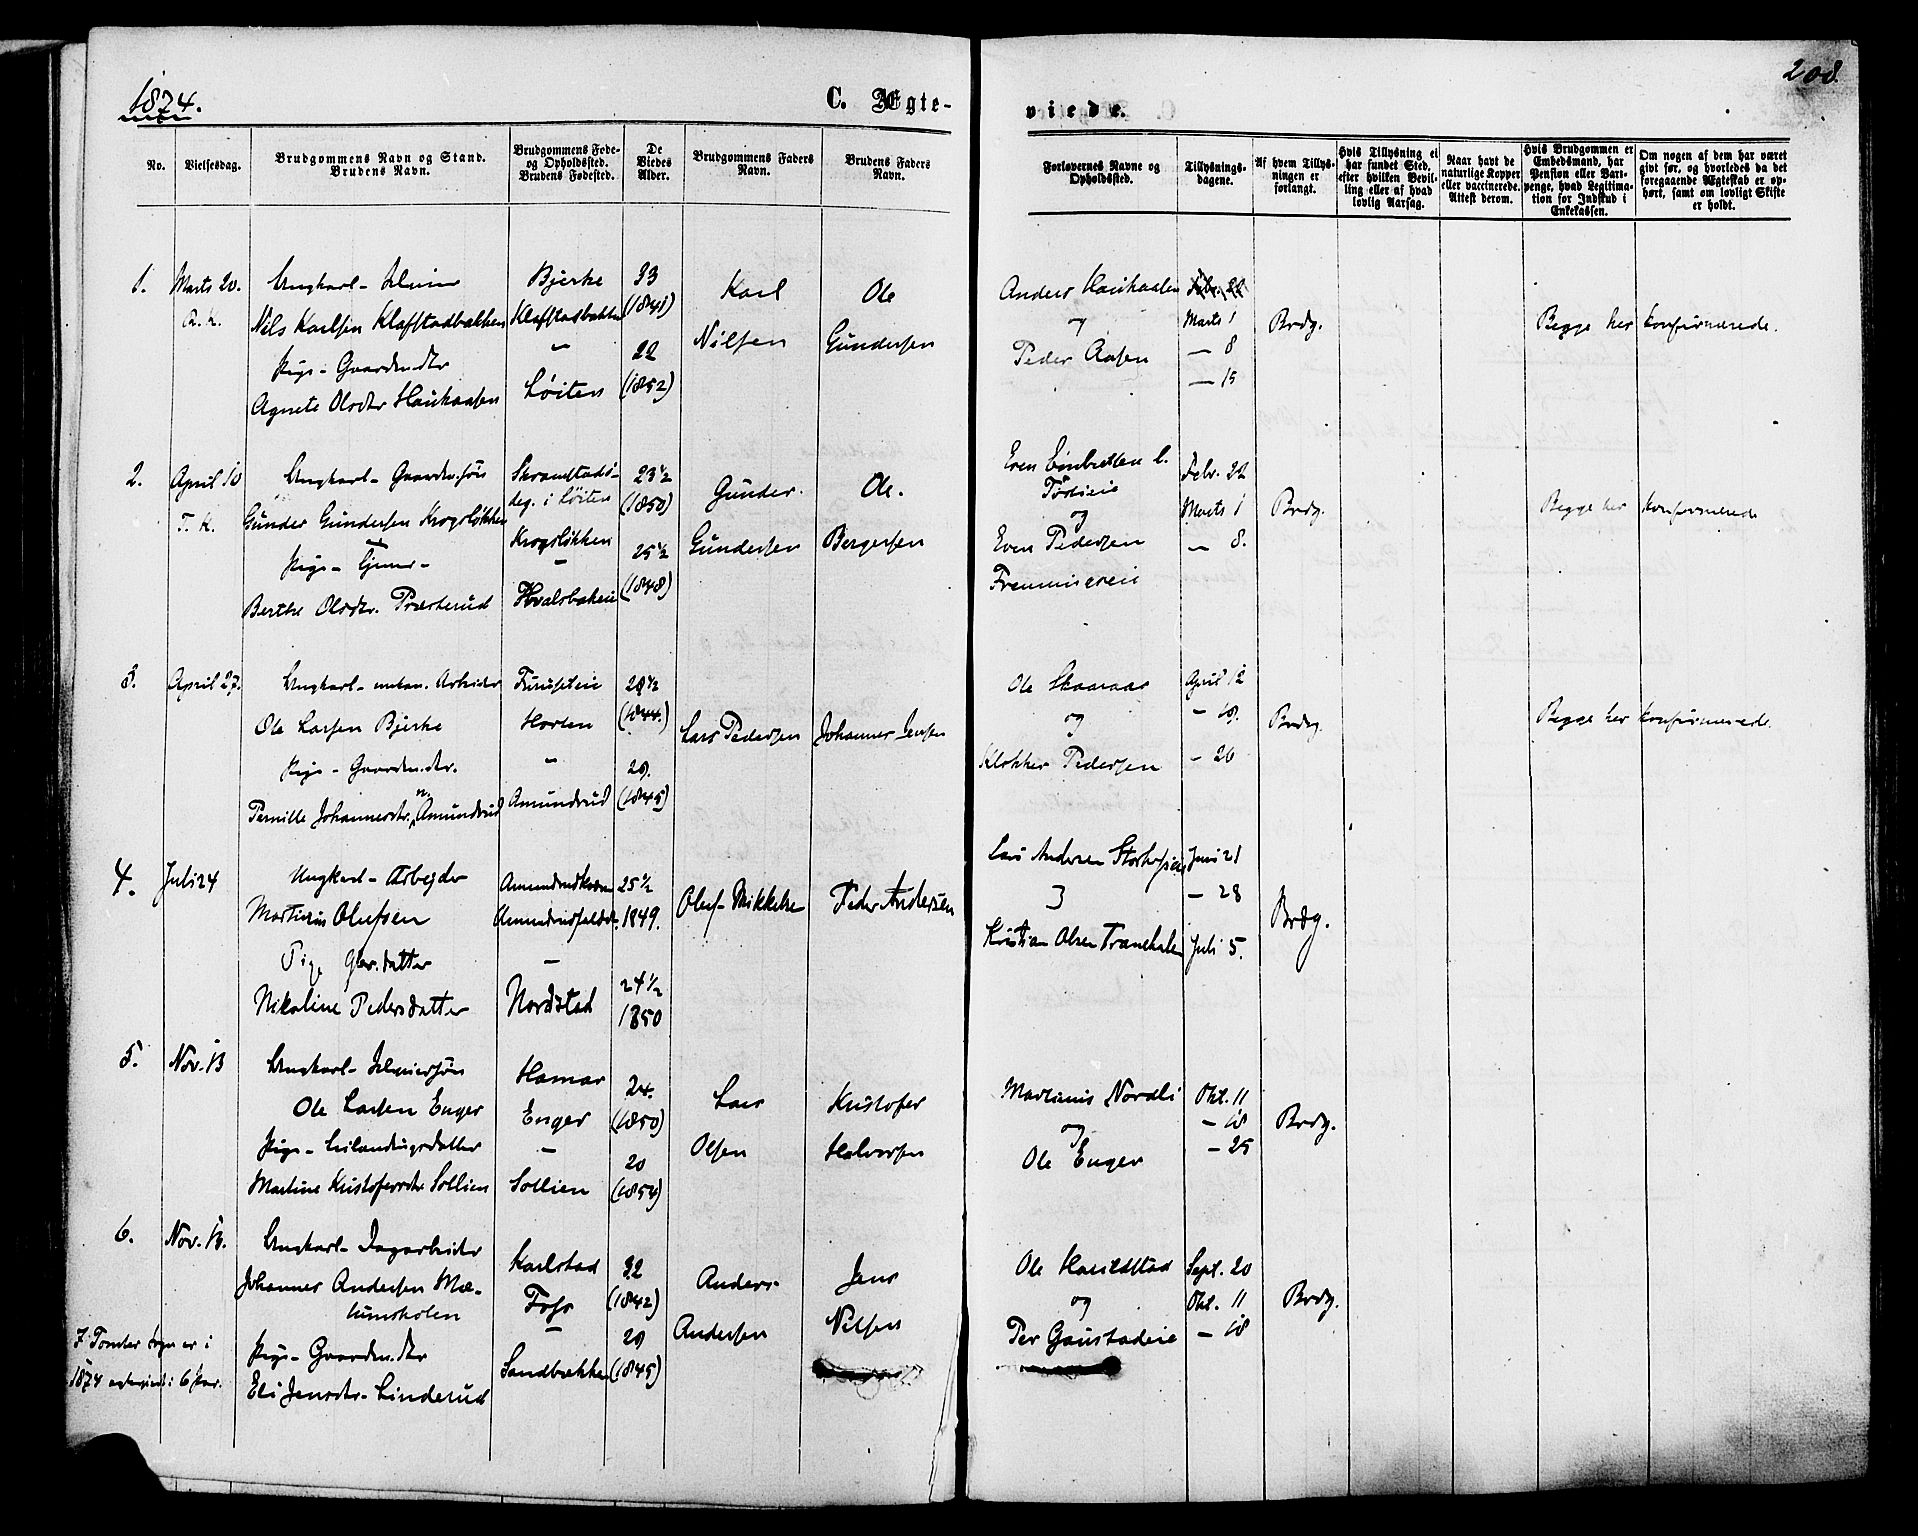 1874.
C. Ægte-
No.
Vielsesdag.
Brudgommens Navn og Stand.
Brudens Navn.
Brudgommens Føde-
og Opholdssted.
Brudens Fødested.
De
Viedes
Alder.
Brudgommens Faders
Navn.
Brudens Faders
Navn.
1.
Marts 20.
Ungkarl-
Nils Karlsen Klafstadbakken
Pige- Gaardm.dtr
Agnete Olsdtr Haukaasen
Bjerke
Klafstadbakken
Løiten
33
(1841)
22
(1852)
Karl
Nilsen
Ole
Gundersen
2.
April 10
Ungkarl- Gaardm.søn
Gunder Gundersen Krogsløkken
Pige-
Berthe Olsdtr. Præsterud
Skramstads-
i Løiten
Krogsløkken
23½
(1850)
25½
(1848)
Gunder
Gundersen
Ole.
Bergersen
3.
April 27.
Ungkarl- Arbeider
Ole Larsen Bjerke
Pige- Gaardm.dtr.
Pernille Johannesdtr. Amundrud
Horten
Amundrud
(1844.)
29.
(1845)
Lars Pedersen
Johannes Jensen
4.
Juli 24
Ungkarl- Arbejder
Martinus Olufsen
Pige
Nikoline Pedersdatter
Nordstad
25½
1849.
24½
1850
Oluf Mikkelse
Peder Andersen
5.
Nov. 13
Ungkarl-
Ole Larsen Enger
Pige-
Martine Kristofersdtr Sollien
Hamar
Enger
Sollien
24.
(1850)
20
(1854)
Lars
Olsen
Kristofer
Halvorsen
6.
Nov. 13.
Ungkarl- Dagarbeider
Johannes Andersen Mæ-
lumskolen
Pige- Gaardm.dtr
Eli Jensdtr- Linderud
Karlstad
Foss
Sandbækken
32
(1842)
29
(1845)
Anders
Andersen
Jens
Nilsen
I Tomter Sogn er i
1874 ægteviet i 6 Par.
viede.
208.
Forlovernes Navne og
Opholdssted.
Tillysnings-
dagene.
Af hvem Tillys-
ningen er
forlangt.
Hvis Tillysning ei
har fundet Sted,
efter hvilken Bevil-
ling eller af hvad
lovlig Aarsag.
Naar havt de
naturlige Kopper
eller vaccinerede.
Attest derom.
Hvis Brudgommen er
Embedsmand, har
Pension eller Var-
penge, hvad Legitima-
tion for Indskud i
Enkekassen.
Om nogen af dem har været
gift før, og hvorledes da det
foregaaende Ægteskab er op-
hørt, samt om lovligt Skifte
er holdt.
Anders Haukaasen
og
Peder Aasen
Febr. 22
Marts 1
- 8
- 15
Brdg.
Begge her konfirmerede.
Even
og
Even Pedersen
Febr. 22
Marts 1
- 8.
Brdg.
Begge her konfirmerede
Ole Skaaraas
og
Klokker Pedersen
April 12
- 19.
- 26
Brdg.
Begge her konfirmerede.
Lars Andersen
Kristian Olsen
Juni 21
- 28
Juli 5.
Brdg.
Martinus Nordli
og
Ole Enger
Okt. 11
- 18
- 25
Brdg.
Ole
og
Per Gaustadeie
Sept. 20
Okt. 11
- 18
Brdg.